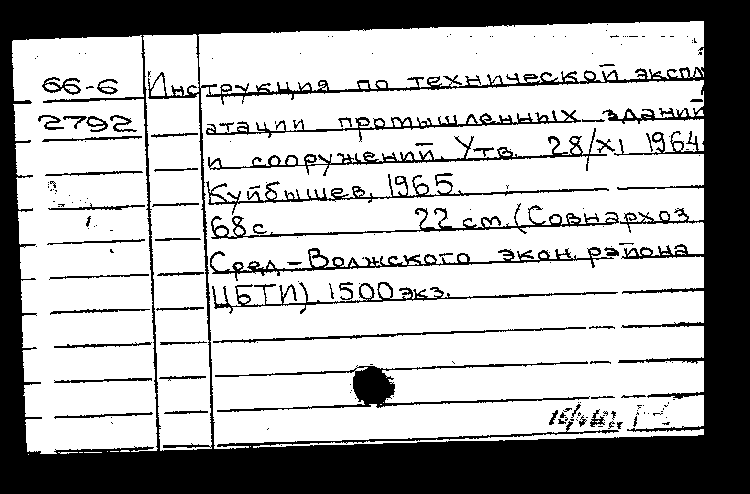 66-6
2792
Инструкция по технической эксплу
атации промышленных зданий
и сооружений. Утв. 28/XI 1964.
Куйбышев, 1965.
68 с. 22 см. (Совнархоз
Сред-Волжского экон. района
ЦБТИ). 1500 экз.